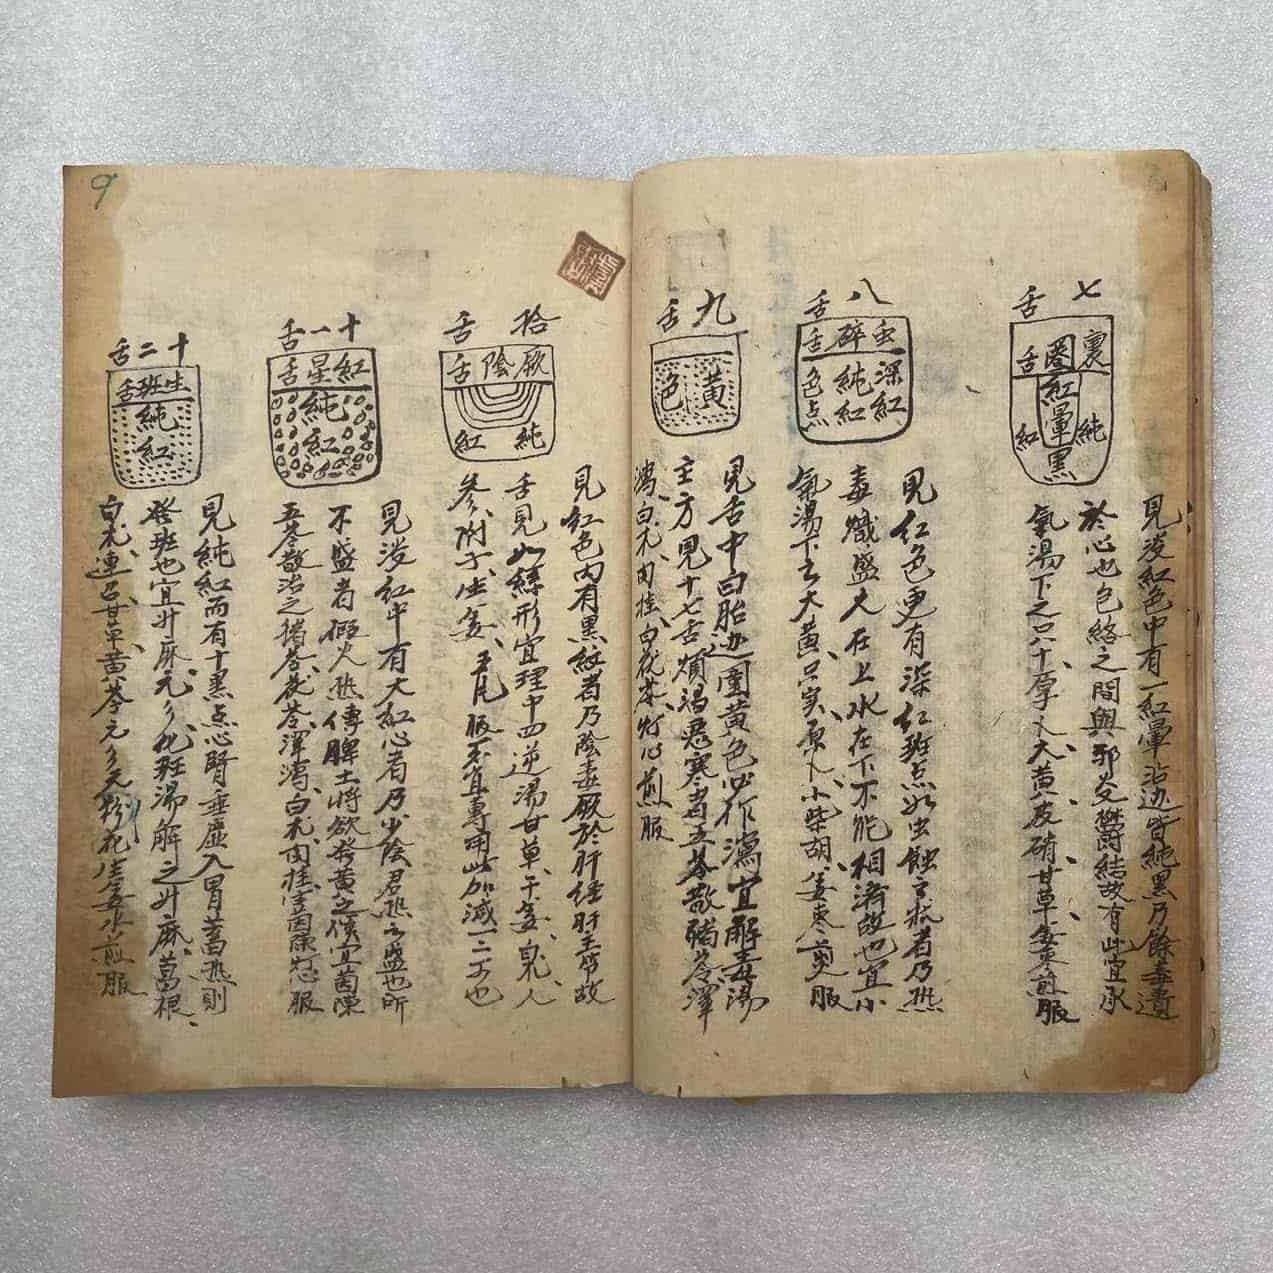 七
舌
裏圈舌
紅暈黑
純紅
見淡紅色中有一紅暈沿边皆純黑乃餘毒遺
於心也包絡之間與邪火欝結故有此宜承
氣湯下之只十厚人大黃皮硝甘草姜枣煎服
八
舌
虫碎舌
深紅
純紅
色点
見红色更有深红斑点如虫蝕之状者乃热
毒熾盛火在上水在下不能相濟故也宜小
氣湯下之大黃只实原人小柴胡姜枣煎服
九
舌
黃色
見舌中白胎边圍黃色必作瀉宜解毒湯
主方見十七舌煩渴惡寒者五苓散豬苓澤
瀉白朮肉桂白茯苓灯心煎服
拾
舌
厥陰舌
純紅
見紅色內有黑紋者乃陰毒厥於肝经肝主筋故
舌見如絲形宜理中四逆湯甘草干姜白朮人
參附子生姜 服不宜專用此加減一二可也
十一
舌
紅星舌
純紅
見淡紅中有大紅心者乃少陰君热之盛也所
不盛者假火热傳脾土將欲發黃之候宜茵陳
五苓散治之猪苓茯苓澤瀉白朮肉桂茵陳灯心服
十二
舌
生班舌
純紅
見純紅而有十黑点心腎垂虛入胃蓄热則
發班也宜升麻元參化班湯解之升麻葛根
白朮連召甘草黃芩元參天粉花生姜水煎服